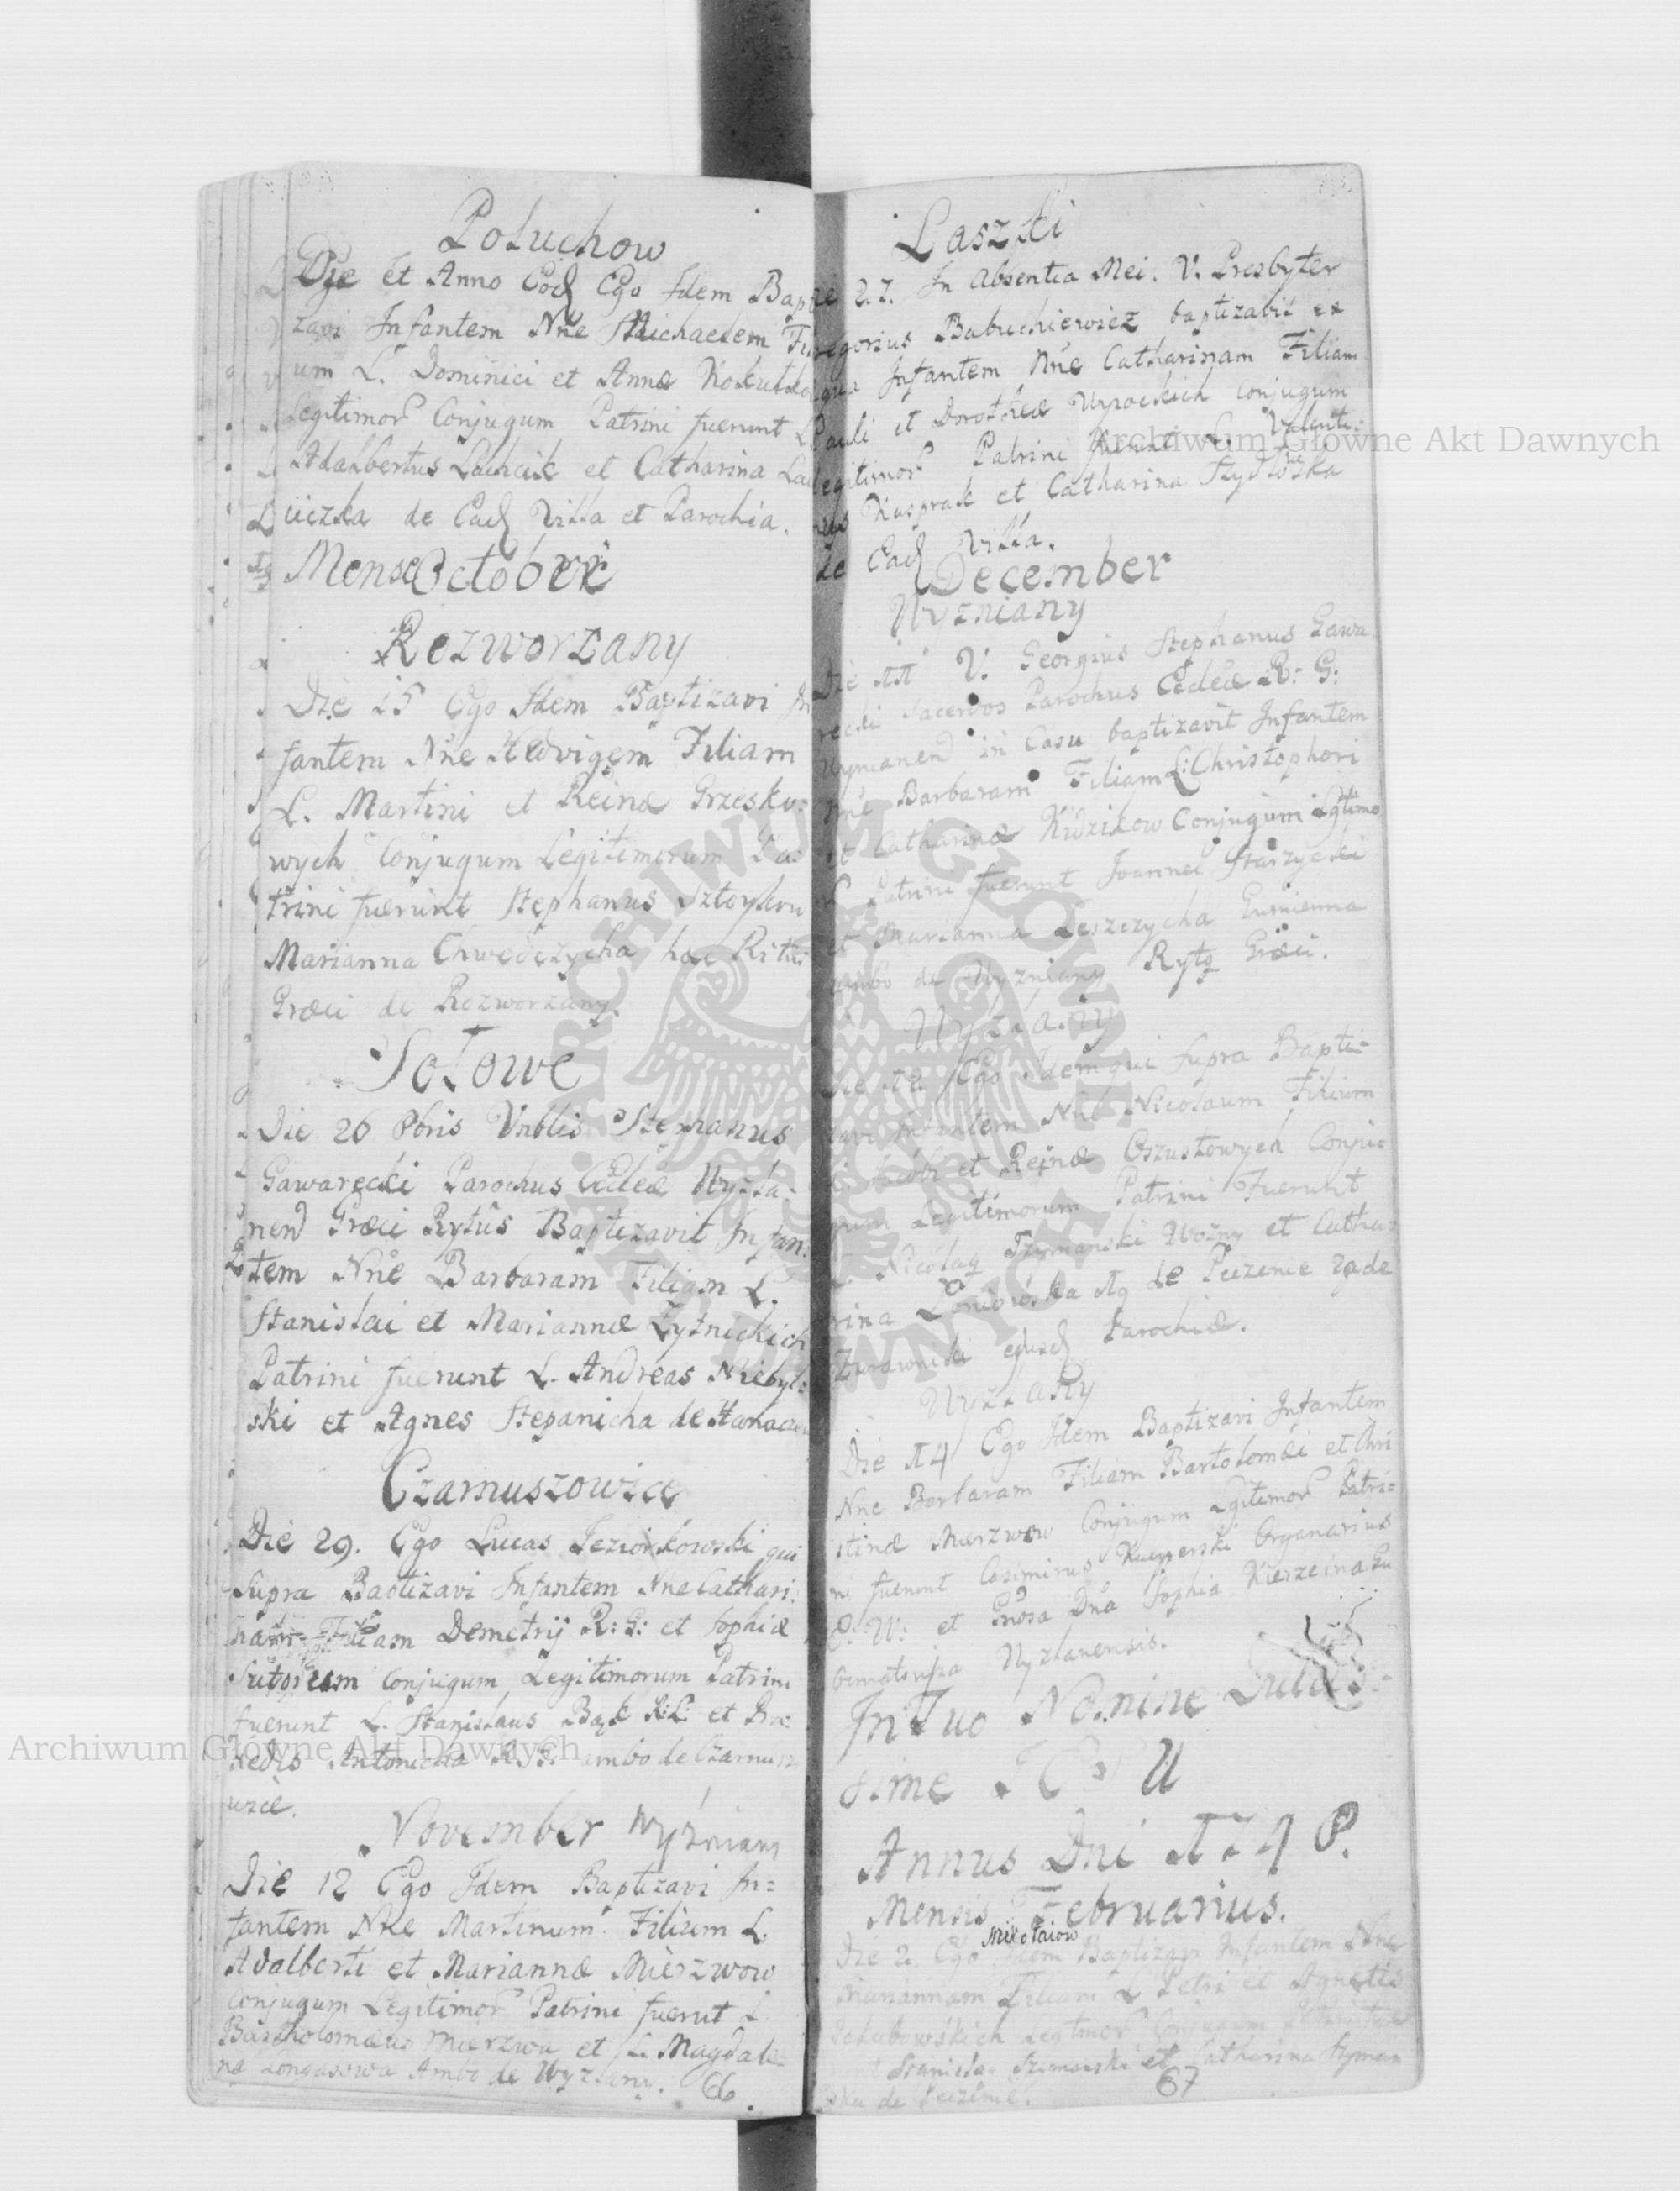 Poluchow
Die et Anno Eod Ego Idem Bapti
zavi Infantem Nne Michaelem Fili
um L. Dominici et Annæ
Legitimor Conjugum Patrini fuerunt L
Adalbertus et Catharina
de Ead Villa et Parochia.
Mense Octobri
Rozworzany
Die 15 Ego Idem Baptizavi In
fantem Nne Hedvigem Filiam
L. Martini et Reinæ Grzesko:
wych Conjugum Legitimorum Pa:
trini fuerunt Stephanus
Marianna Chwedczycha hac Ritus
Græci de Rozworzany.
Sołowe
Die 26 8bris Vnblis Stephanus
Gawarecki Parochus Ecclæ Wyżła:
nen Græci Rytûs Baptizavit Infan:
tem Nne Barbaram Filiam L.
Stanislai et Mariannæ Zytnickich
Patrini fuerunt L. Andreas Niebyl:
ski et Agnes Stepanicha de
Czarnuszowice
Die 29. Ego Lucas Jeziorkowski qui
Supra Baptizavi Infantem Nne Cathari:
nam Filiam Demetrij R: G: et Sophiæ
Conjugum Legitimorum Patrini
fuerunt L. Stanislaus Bąk R: L: et Pra:
xedis Antonicha R G ambo de Czarnusz
owice.
November Wyżniany
Die 12 Ego Idem Baptizavi In=
fantem Nne Martinum Filium L.
Adalberti et Mariannæ Mierzwow
Conjugum Legitimor Patrini fuerut L
Bartholomæus Mierzwa et L. Magdale=
na Longasowa Ambo de Wyżlany. 66.
Laszki
27. In Absentia Mei. V. Presbyter
Gregorius Babuchiewicz baptizavit ex
aqua Infantem Nne Catharinam Filiam
Pauli et Dorotheæ Conjugum
Legitimor Patrini fuerunt L. Valenti:
nus Kasprak et Catharina
de Ead Villa.
December
Wyżniany
Die 11 V. Georgius Stephanus Gawa
recki Sacerdos Parochus Ecclæ R: G:
in Casu baptizavit Infantem
Nne Barbaram Filiam L: Christophori
et Catharinæ Kidzikow Conjugum Lgtimo
Patrini fuerunt Joannes Starzycki
et Marianna Leszczycha
ambo de Wyzniany Rytq Græci.
Wyżlany
Die 12 Ego Idem qui supra Bapti=
zavi Infantem Nne Nicolaum Filium
L. Jacobi et Reinæ Oszustowych Conju=
gum Legitimorum Patrini Fuerunt
L. Nicolaq Szymanski Wożny et Catha=
rina de
ejusd Parochiæ.
Wyżlany
Die 14 Ego Idem Baptizavi Infantem
Nne Barbaram Filiam Bartolomæi et Chri
stinæ Mierzwow Conjugum Lgitimor Patri=
ni fuerunt Casimirus Organarius
E: W: et Gnosa Dna Sophia
Wyżlanensis.
In Tuo Nomine Dulcis:
sime IESU
Annus Dni 174
Mensis Februarius.
Mikołaiow
Die 2 Ego Idem Baptizavi Infantem Nne
Mariannam Filiam L Petri et Agnetis
Jakubowskich Legtmor Conjugum
Stanisla Szymanski et Catharina Szyman
ska de
67
Archiwum Główne Akt Dawnych
Archiwum Główne Akt Dawnych
ARCHIWUM GŁÓWNE AKT DAWNYCH